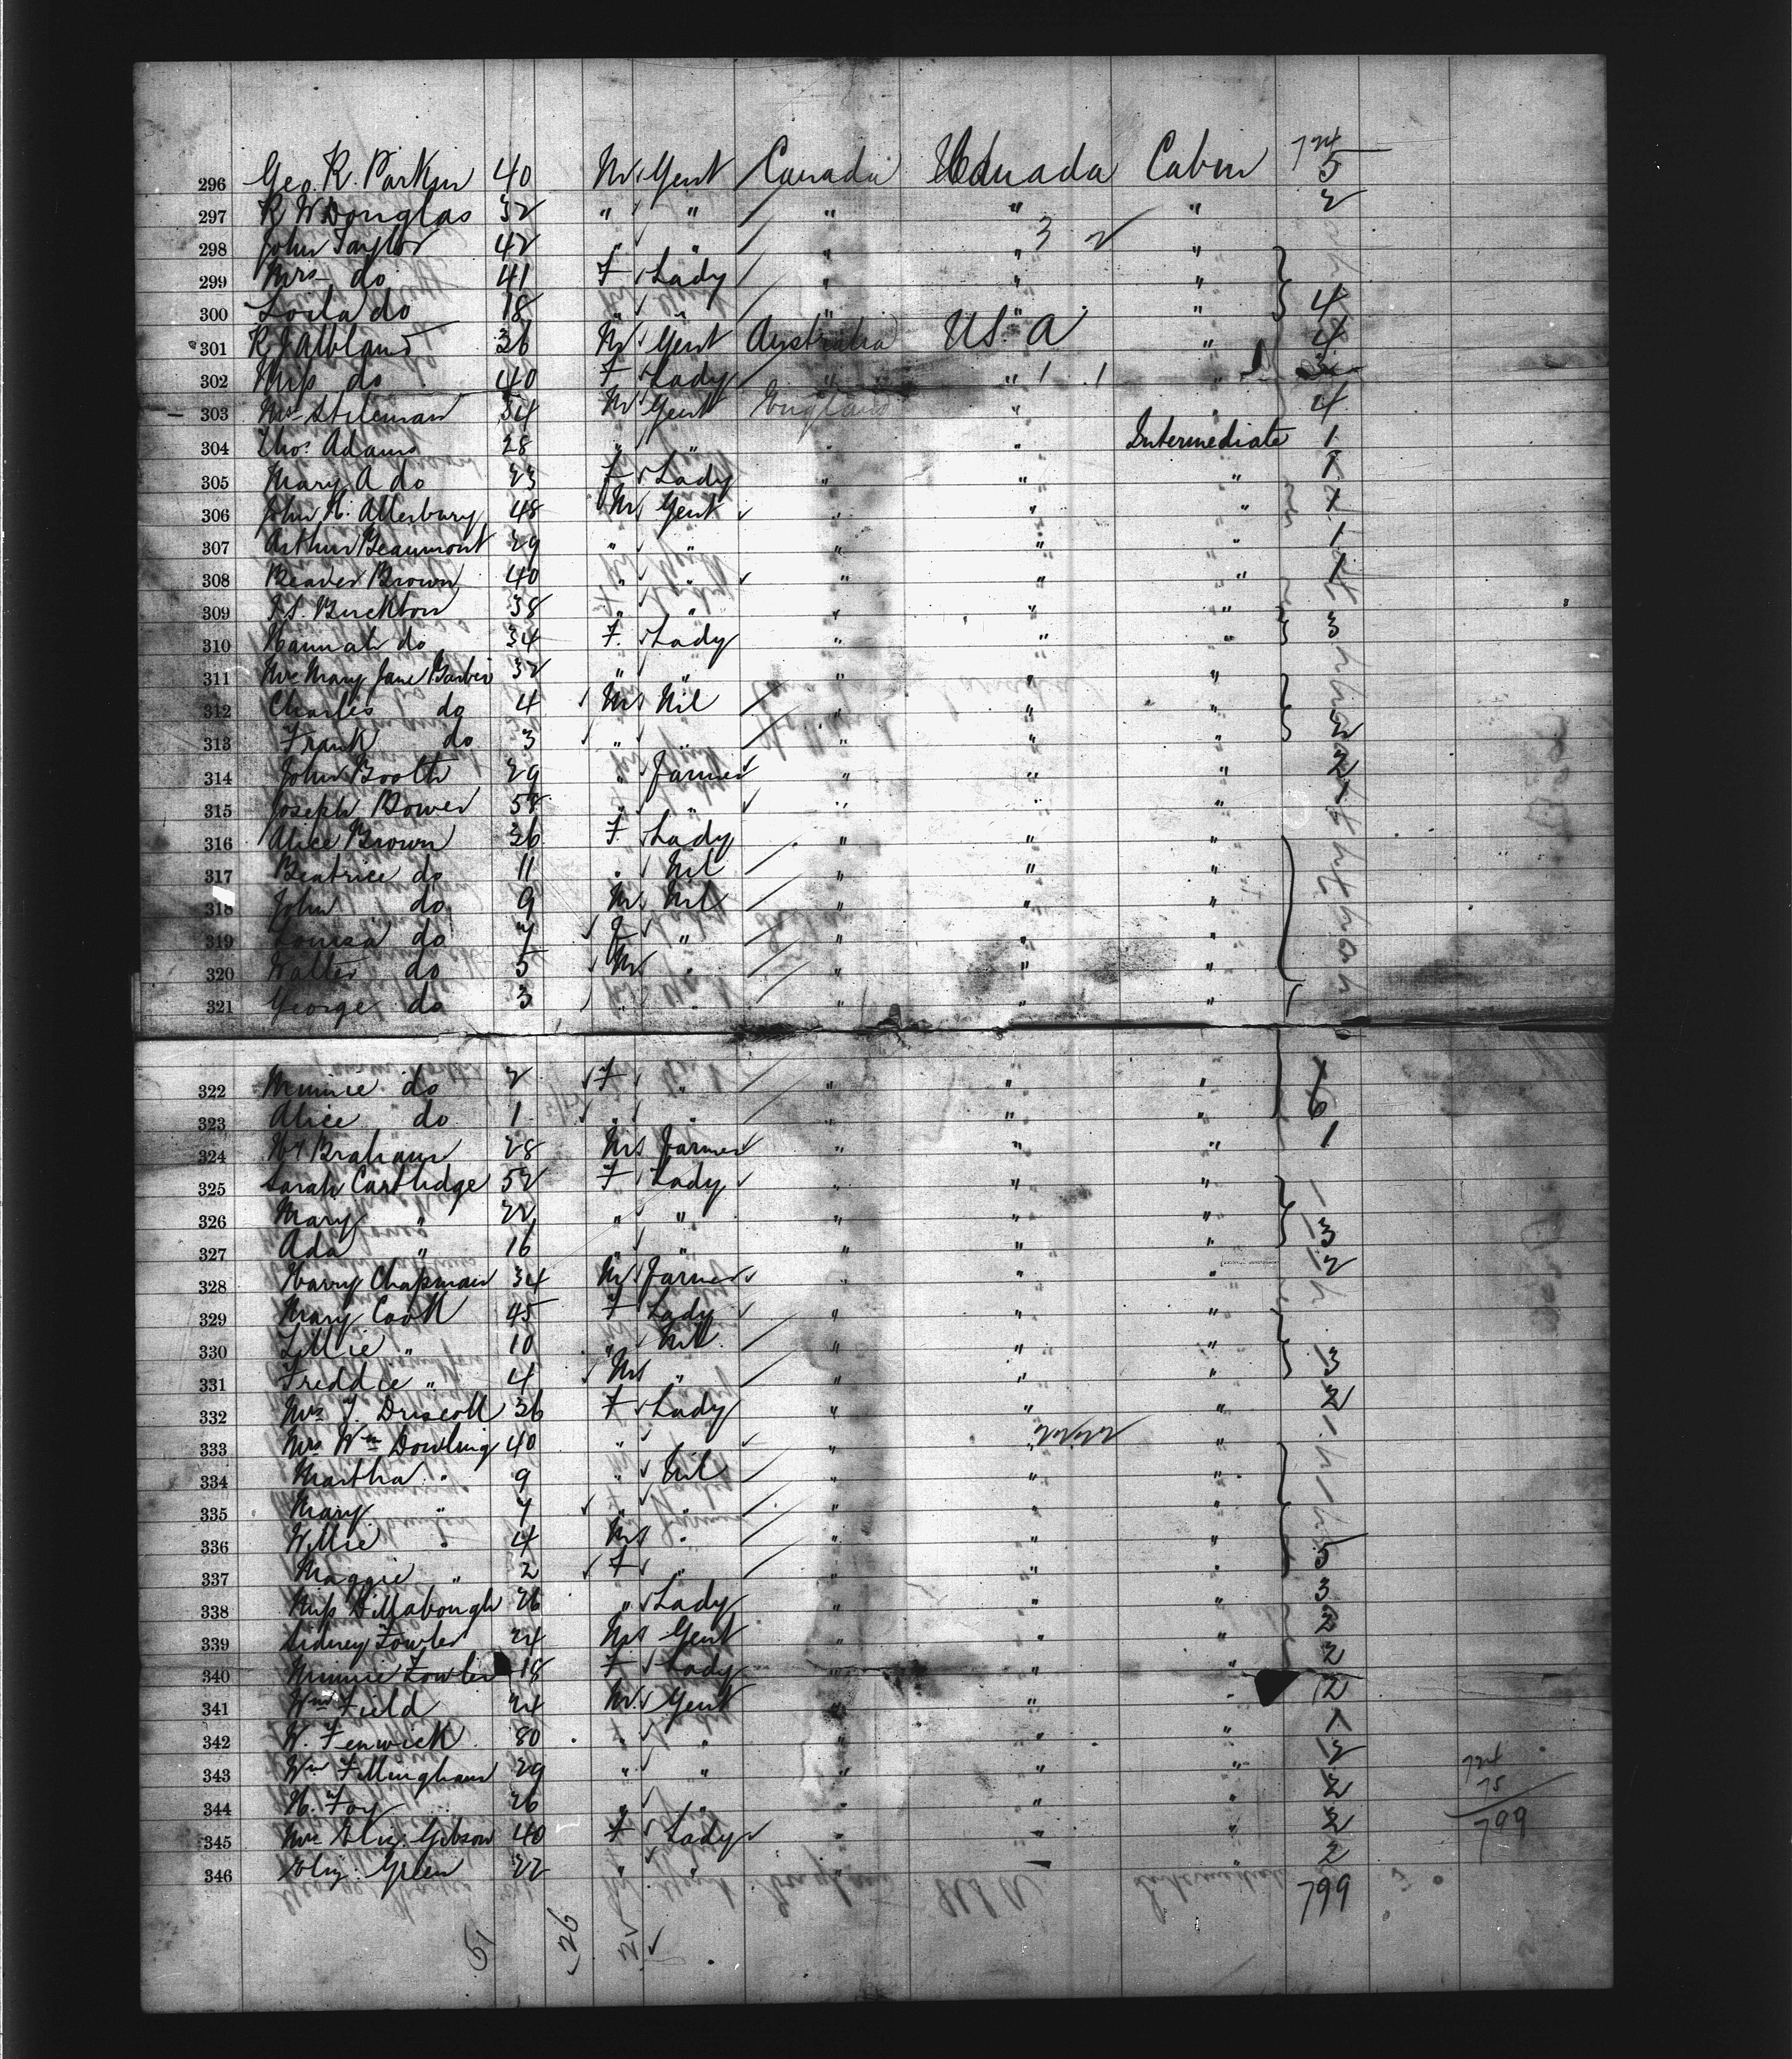 724
296 Geo. R. Parkin 40 M Gent Canada Canada Cabin 5
297 R W Douglas 32 " " " " " 2
298 John Taylor 42 " " " " "
299 Mrs do 41 F Lady " " "
300 do 18 " " " " " 4
301 36 M Gent Australia U.S. A " 4
302 Mrs do 40 F Lady " " "
303 Stileman 34 M Gent England " 4
304 Thos Adams 28 " " " " Intermediate 1
305 Mary A do 23 F Lady " " " 1
306 John H. Atterbury 48 M Gent " " " 1
307 Arthur Beaumont 29 " " " " " 1
308 Beaver Brown 40 " " " " " 1
309 Buckton 38 " " " " "
310 Hannah do 34 F Lady " " " 3
311 Mrs Mary Jane Barber 32 " " " " "
312 Charles do 4 M Nil " " "
313 Frank do 3 " " " " "
314 John Booth 29 " Farmer " " " 2
315 Joseph Bower 58 " " " " " 1
316 Alice Brown 36 F Lady " " "
317 Beatrice do 11 " Nil " " "
318 John do 9 M Nil " " "
319 Louisa do 7 F " " " "
320 Walter do 5 M " " " "
321 George do 3 " " " " "
322 Minnie do 2 F " " " "
323 Alice do 1 " " " " " 6
324 28 M Farmer " " " 1
325 Sarah Cartlidge 52 F Lady " " "
326 Mary " 22 " " " " "
327 Ada " 16 " " " " " 3
328 Harry Chapman 34 M Farmer " " " 2
329 Mary Cook 45 F Lady " " "
330 Lillie " 10 " Nil " " "
331 Freddie " 4 M " " " " 3
332 Mrs J. Driscoll 36 F Lady " " " 2
333 Mrs Wm Dowling 40 " " " " "
334 Martha " 9 " Nil " " "
335 Mary " 7 " " " " "
336 Willie " 4 M " " " "
337 Maggie " 2 F " " " " 5
338 Miss Dillabough 26 " Lady " " " 3
339 Sidney Fowler 24 M Gent " " " 2
340 Minnie Fowler 18 F Lady " " " 2
341 Wm Field 24 M Gent " " " 2
342 W. Fenwick 30 " " " " " 1
343 Wm Fillingham 29 " " " " " 2
344 H. Foy 26 " " " " " 2
345 Mrs Eliz. Gibson 40 F Lady " " " 2
346 Eliz. Green 22 " " " " " 2
724
75
799
799